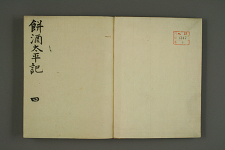 餅酒太平記
四